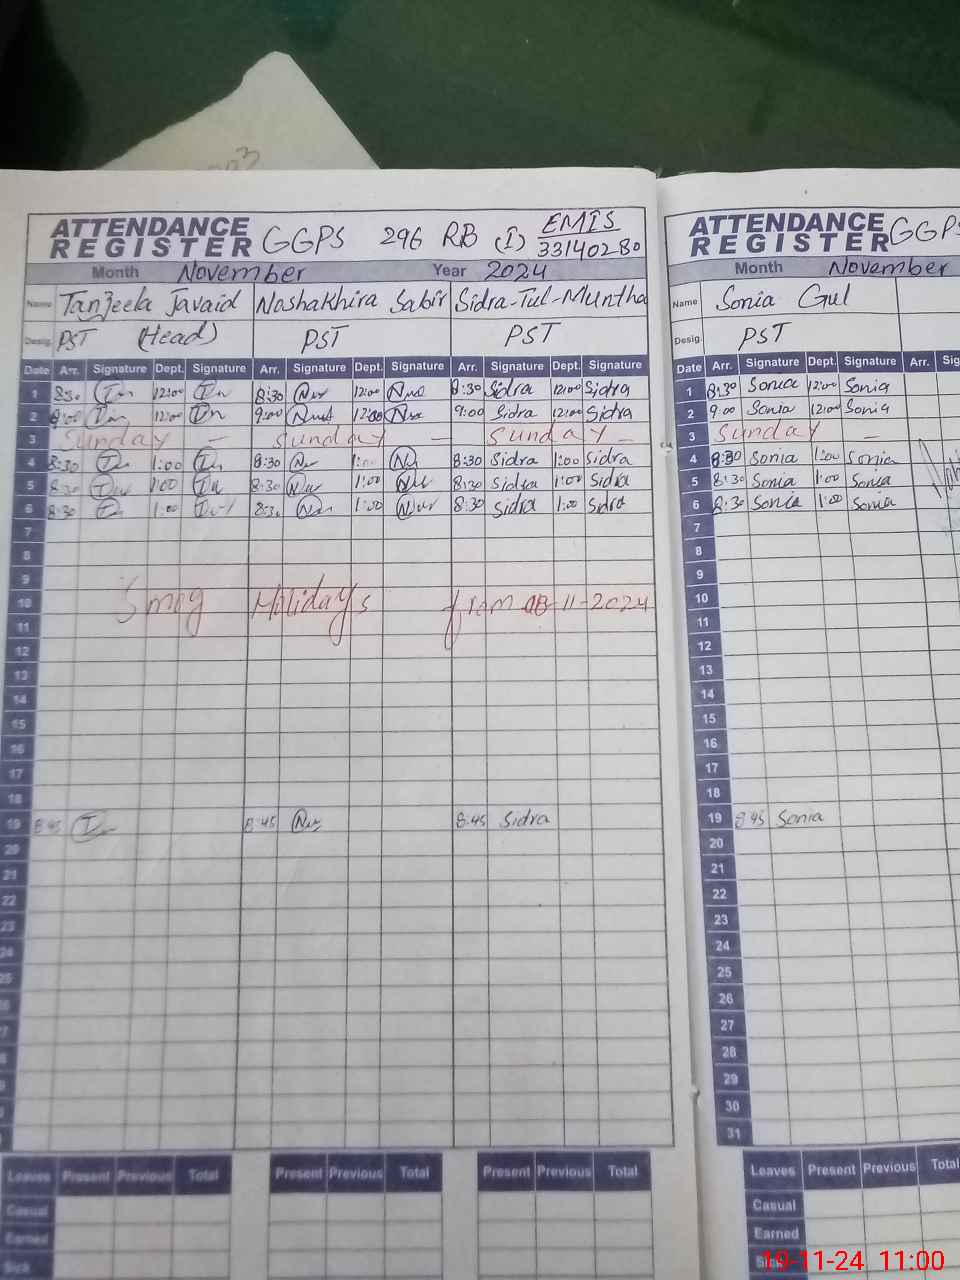 ATTENDANCE REGISTER GGPS 296 RB (I) EMIS 33140280
Month November Year 2024
Name Tanzeela Javaid Nashakhira Sabir Sidra-Tul-Muntha
Desig. PST (Head) PST PST
Date Arr. Signature Dept. Signature Arr. Signature Dept. Signature Arr. Signature Dept. Signature
1 8:30 12:00 8:30 12:00 8:30 Sidra 12:00 Sidra
2 9:00 12:00 9:00 12:00 9:00 Sidra 12:00 Sidra
3 Sunday — Sunday — Sunday —
4 8:30 1:00 8:30 1:00 8:30 Sidra 1:00 Sidra
5 8:30 1:00 8:30 1:00 8:30 Sidra 1:00 Sidra
6 8:30 1:00 8:30 1:00 8:30 Sidra 1:00 Sidra
7
8
9
10 Smog Holidays from 08-11-2024
11
12
13
14
15
16
17
18
19 8:45 8:45 8:45 Sidra
20
21
22
23
24
25
Leaves Present Previous Total Present Previous Total Present Previous Total
Casual
Earned
Sick
ATTENDANCE REGISTER GGPS
Month November
Name Sonia Gul
Desig. PST
Date Arr. Signature Dept. Signature Arr. Sig
1 8:30 Sonia 12:00 Sonia
2 9:00 Sonia 12:00 Sonia
3 Sunday —
4 8:30 Sonia 1:00 Sonia
5 8:30 Sonia 1:00 Sonia
6 8:30 Sonia 1:00 Sonia
7
8
9
10
11
12
13
14
15
16
17
18
19 8:45 Sonia
20
21
22
23
24
25
26
27
28
29
30
31
Leaves Present Previous Total
Casual
Earned
Sick
19-11-24 11:00